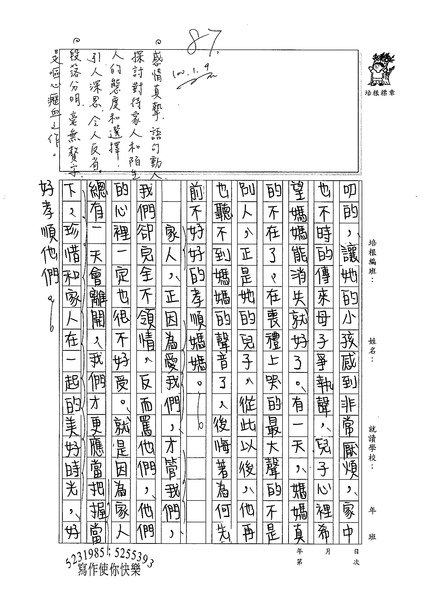 叨的，讓她的小孩感到非常厭煩，家中
也不時的傳來母子爭執聲，兒子心裡希
望媽媽能消失就好了。有一天，媽媽真
的不在了，在喪禮上哭的最大聲的不是
別人，正是她的兒子，從此以後，他再
也聽不到媽媽的聲音了，後悔著為何先
前不好好的孝順媽媽。
家人，正因為愛我們，才管我們，
我們卻完全不領情，反而罵他們，他們
的心裡一定也很不好受。就是因為家人
總有一天會離開，我們才更應當把握當
下，珍惜和家人在一起的美好時光，好
好孝順他們。
87
100.1.9
。感情真摯，語句動人
探討對待家人和陌生
人的態度和選擇，
引人深思，令人反省。
。段落分明，毫無贅字，
是嘔心瀝血之作。
培根標章
培根編班：
姓名：
就讀學校：
年 班
年 月 日
第 次
5231985‧5255393
寫作使你快樂